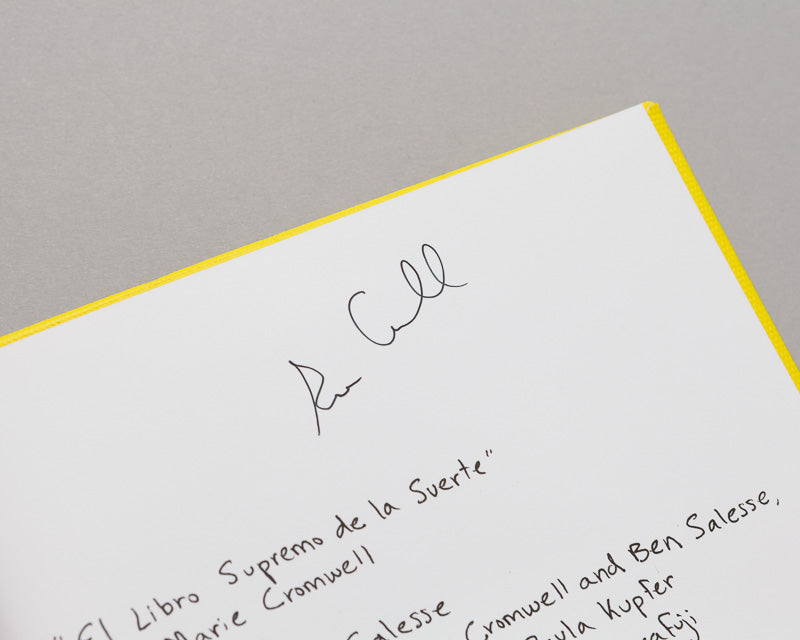 "El Libro Supremo de la Suerte"
Marie Cromwell
Salesse
Cromwell and Ben Salesse,
Paula Kupfer